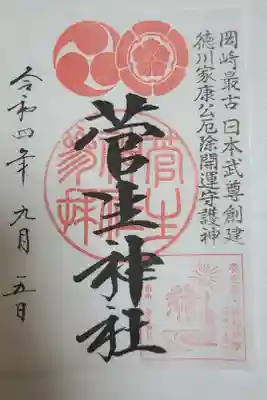 岡崎最古 日本武尊創建
徳川家康公厄除開運守護神
菅生神社
令和四年 九月 五日